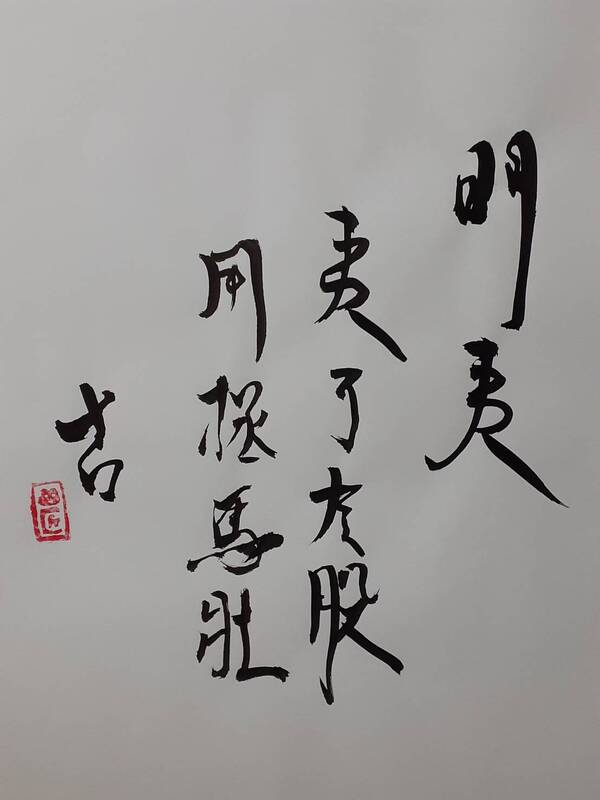 明夷
夷于左股
用拯馬壯
吉